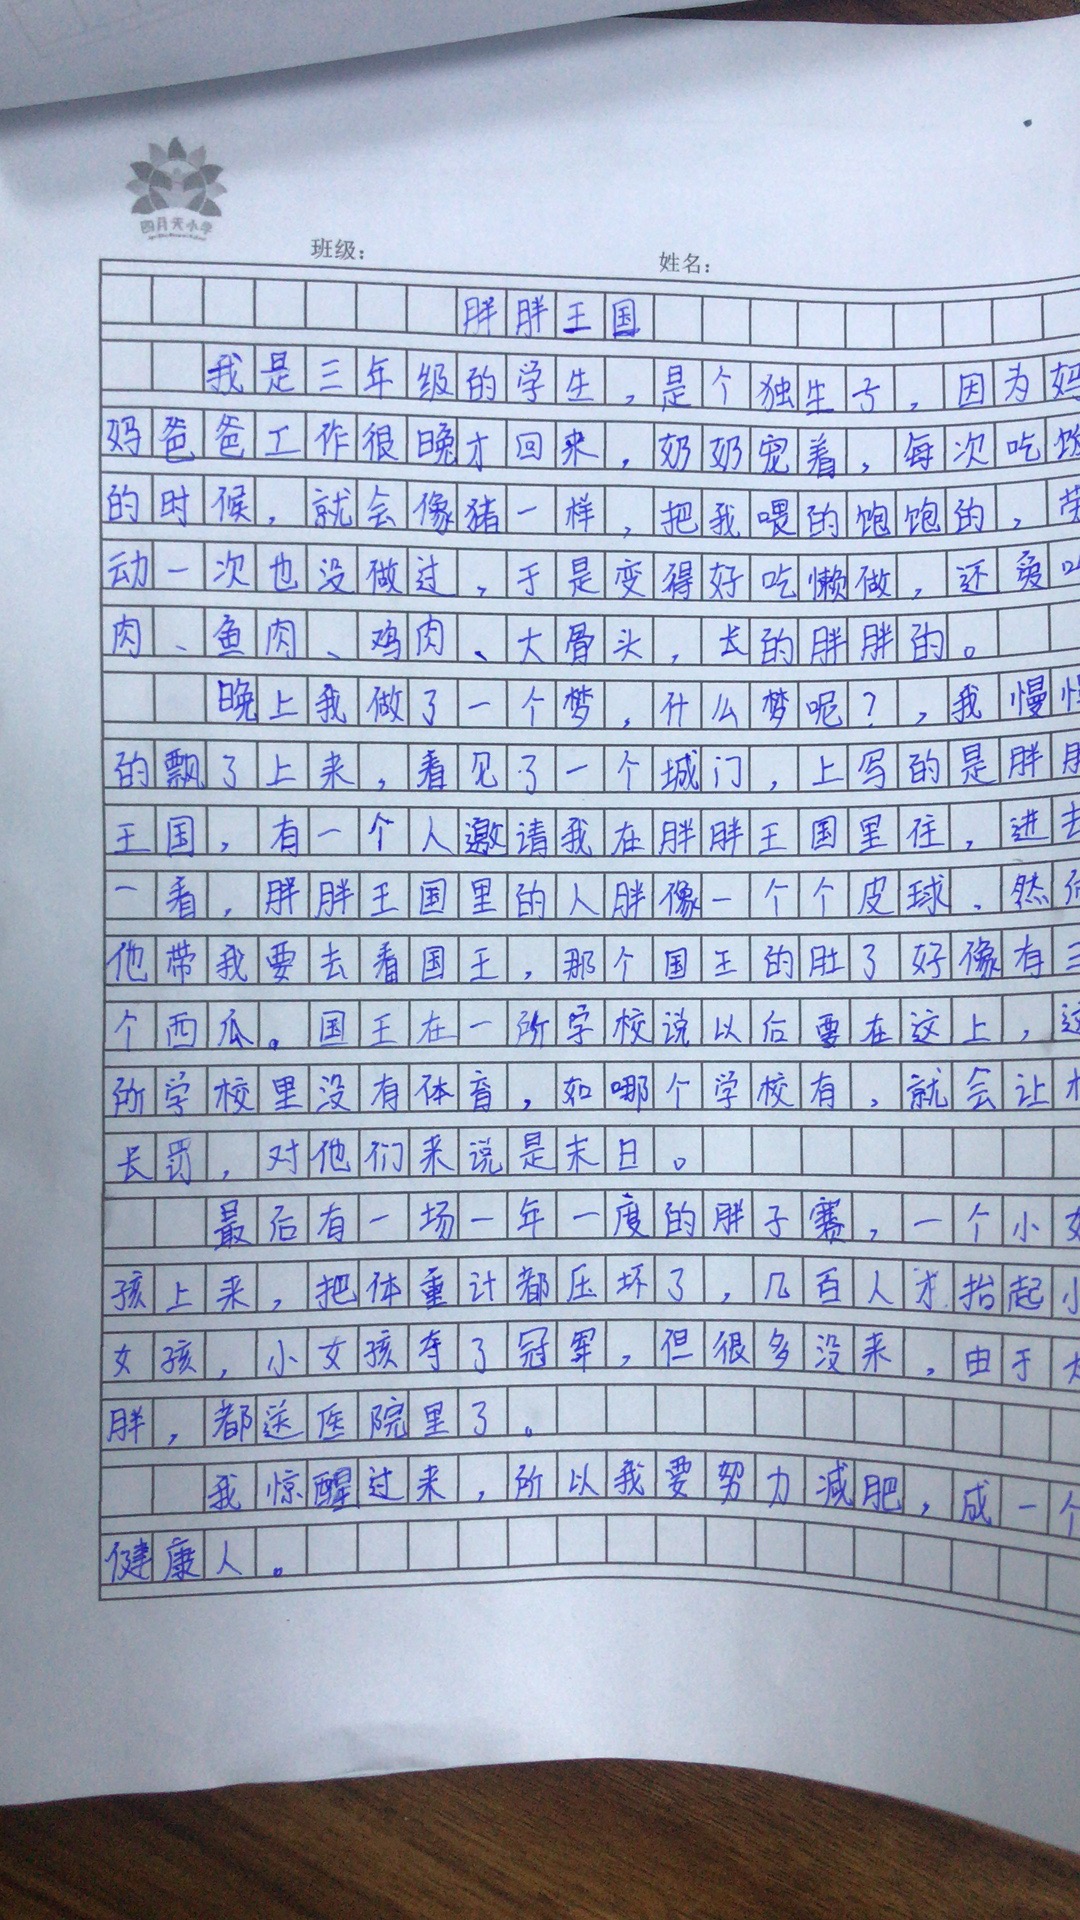 四月天小学
班级：
姓名：
胖胖王国
我是三年级的学生，是个独生子，因为妈
妈爸爸工作很晚才回来，奶奶宠着，每次吃饭
的时候，就会像猪一样，把我喂的饱饱的，
动一次也没做过，于是变得好吃懒做，还爱吃
肉、鱼肉、鸡肉、大骨头，长的胖胖的。
晚上我做了一个梦，什么梦呢？，我慢慢
的飘了上来，看见了一个城门，上写的是胖胖
王国，有一个人邀请我在胖胖王国里住，进去
一看，胖胖王国里的人胖像一个个皮球、然后
他带我要去看国王，那个国王的肚了好像有三
个西瓜。国王在一所学校说以后要在这上，这
所学校里没有体育，如哪个学校有，就会让校
长罚，对他们来说是末日。
最后有一场一年一度的胖子赛，一个小女
孩上来，把体重计都压坏了，几百人才抬起小
女孩，小女孩夺了冠军，但很多没来，由于太
胖，都送医院里了。
我惊醒过来，所以我要努力减肥，成一个
健康人。